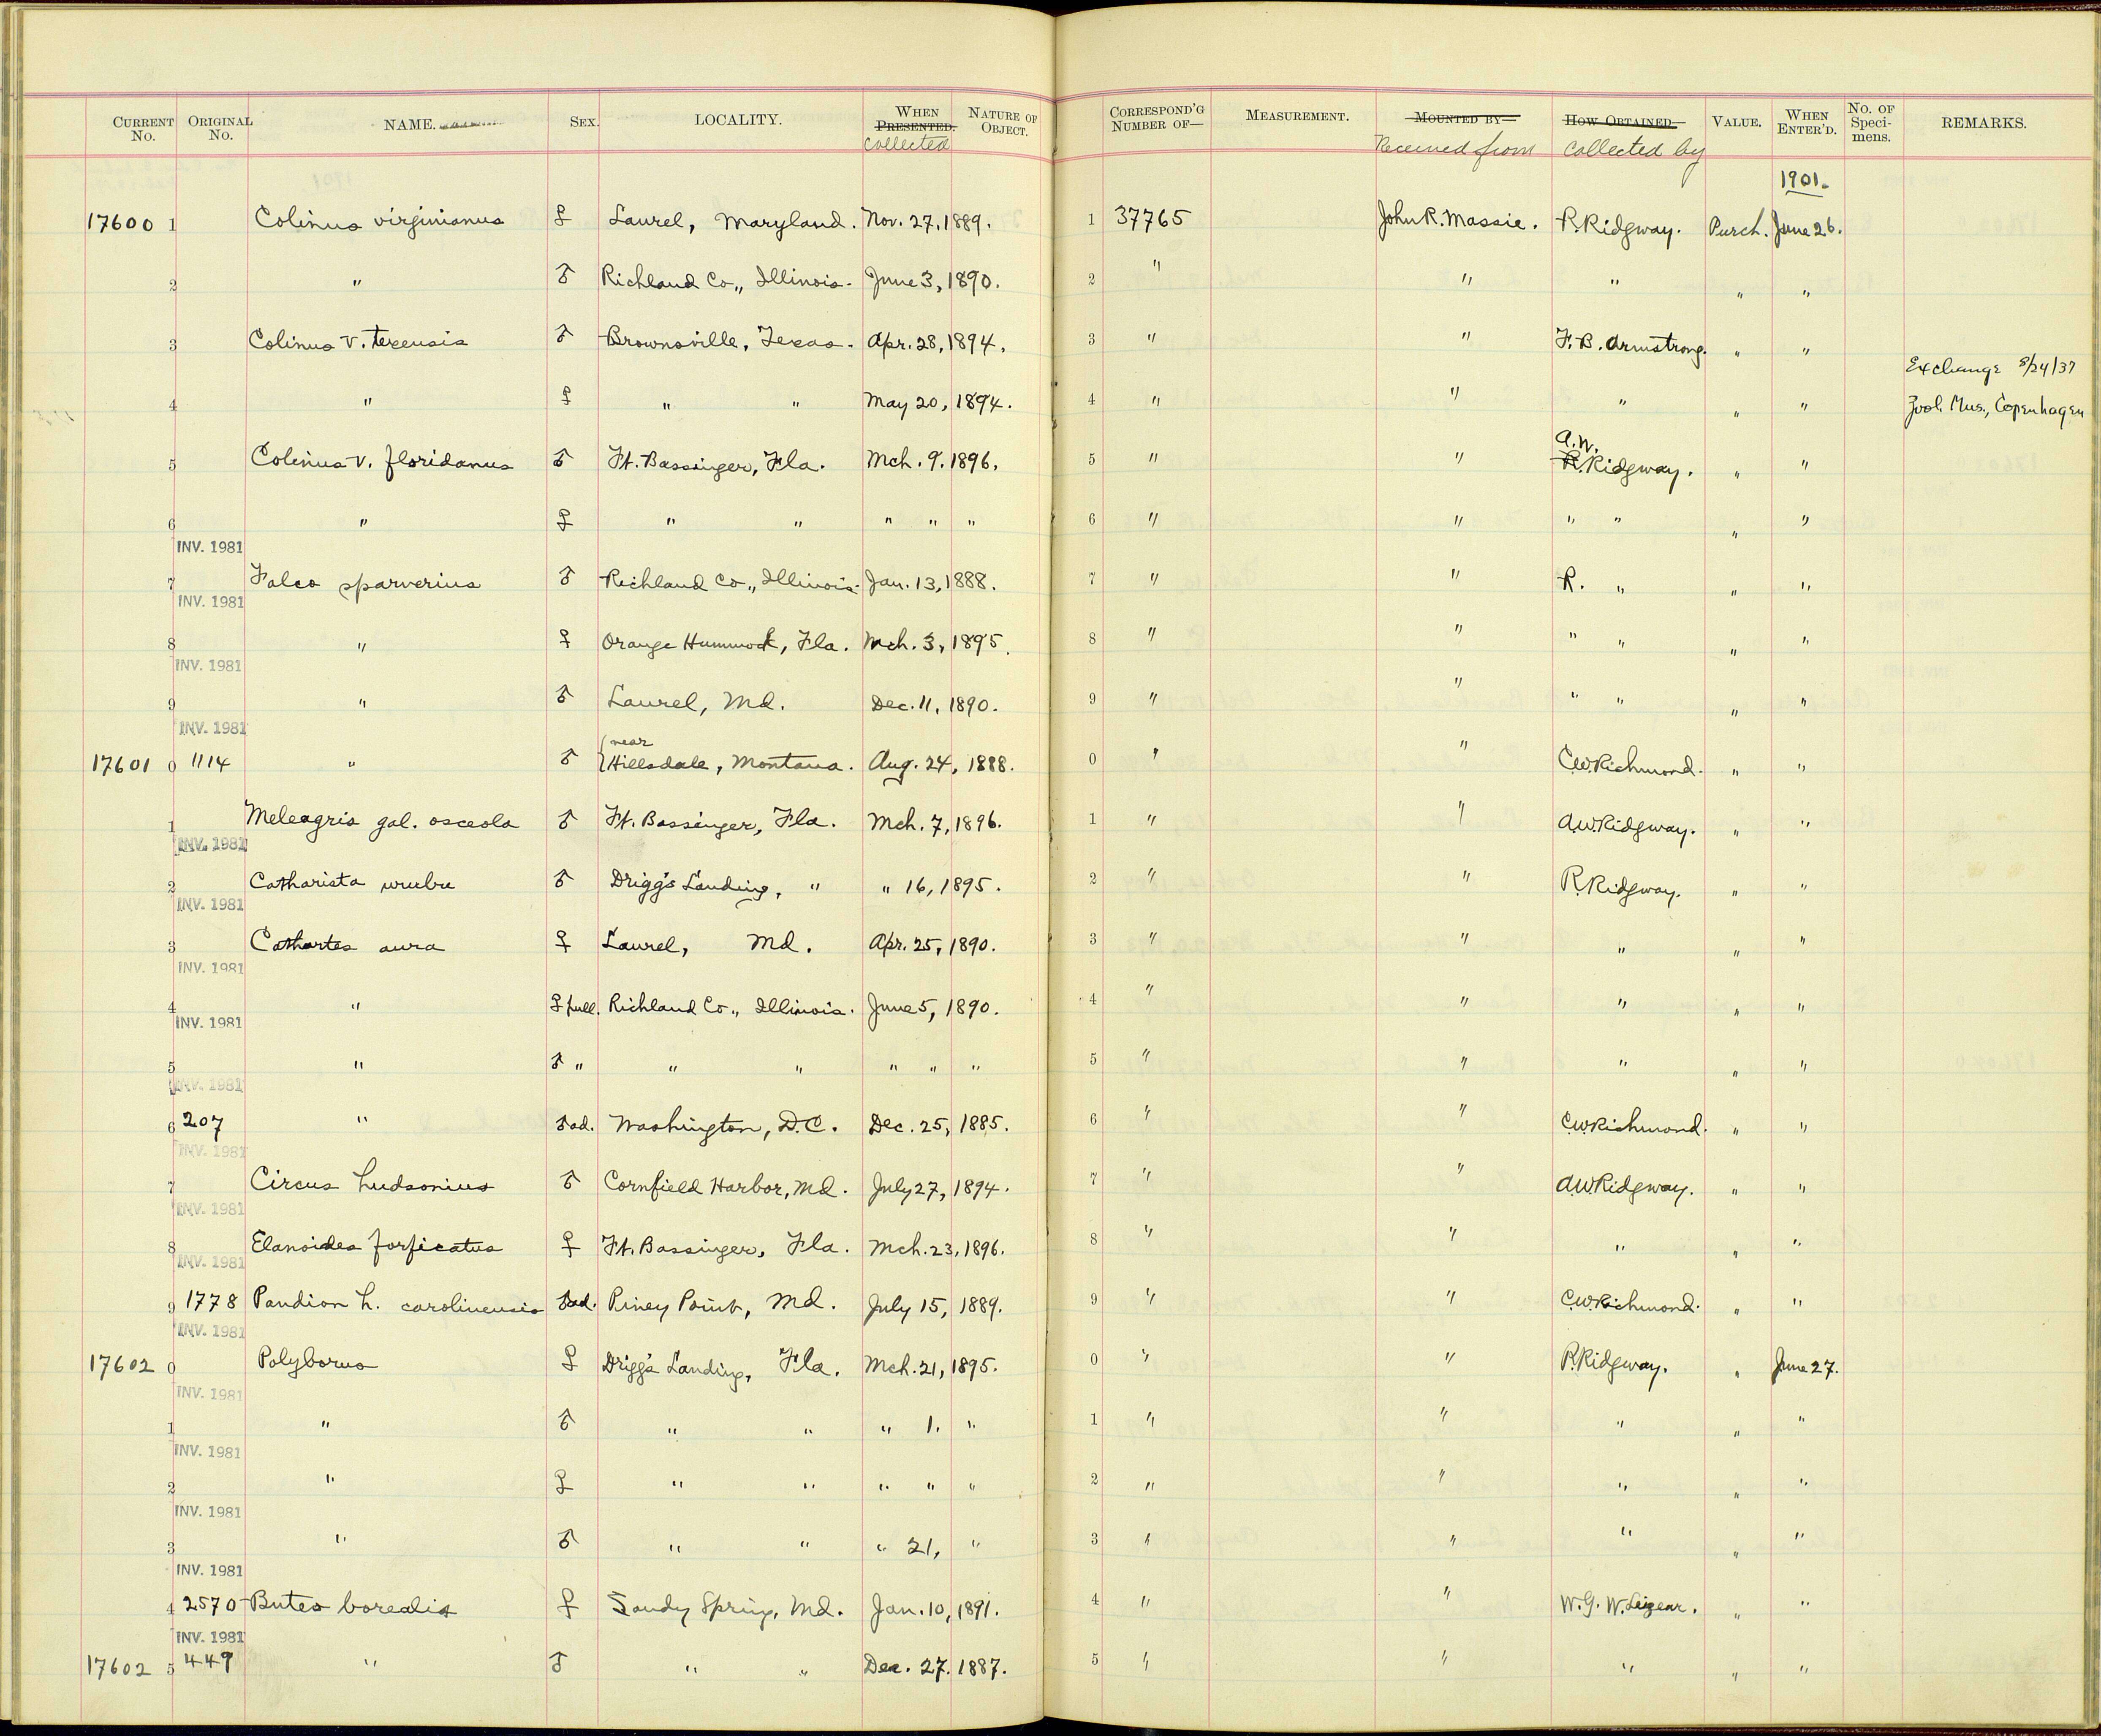 CURRENT No. ORIGINAL No. NAME. SEX. LOCALITY. WHEN PRESENTED. collected NATURE OF OBJECT. CORRESPOND'G NUMBER OF— MEASUREMENT. MOUNTED BY— Received from HOW OBTAINED— Collected by VALUE. WHEN ENTER'D. No. OF Speci-mens. REMARKS.
1901.
17600 1 Colinus virginianus ♀ Laurel, Maryland. Nov. 27, 1889. 1 37765 John R. Massie. R. Ridgway. Purch. June 26.
2 " ♂ Richland Co., Illinois. June 3, 1890. 2 " " " " "
3 Colinus v. texensis ♂ Brownsville, Texas. Apr. 28, 1894. 3 " " F. B. Armstrong. " "
4 " ♀ " " May 20, 1894. 4 " " " " " Exchange 8/24/37 Zool. Mus., Copenhagen
5 Colinus v. floridanus ♂ Ft. Bassinger, Fla. Mch. 9, 1896. 5 " " A.W. R. Ridgway. " "
6 " ♀ " " " " " 6 " " " " " "
INV. 1981
7 Falco sparverius ♂ Richland Co., Illinois. Jan. 13, 1888. 7 " " R. " " "
INV. 1981
8 " ♀ Orange Hummock, Fla. Mch. 3, 1895. 8 " " " " " "
INV. 1981
9 " ♂ Laurel, Md. Dec. 11, 1890. 9 " " " " " "
INV. 1981
17601 0 1114 " ♂ {near Hillsdale, Montana. Aug. 24, 1888. 0 " " C.W. Richmond. " "
1 Meleagris gal. osceola ♂ Ft. Bassinger, Fla. Mch. 7, 1896. 1 " " A.W. Ridgway. " "
INV. 1981
2 Catharista urubu ♂ Drigg's Landing, " " 16, 1895. 2 " " R. Ridgway. " "
INV. 1981
3 Cathartes aura ♀ Laurel, Md. Apr. 25, 1890. 3 " " " " "
INV. 1981
4 " ♀ pull. Richland Co., Illinois. June 5, 1890. 4 " " " " "
INV. 1981
5 " ♂ " " " " " " 5 " " " " "
INV. 1981
6 207 " ♂ ad. Washington, D.C. Dec. 25, 1885. 6 " " C.W. Richmond. " "
INV. 1981
7 Circus hudsonius ♂ Cornfield Harbor, Md. July 27, 1894. 7 " " A.W. Ridgway. " "
INV. 1981
8 Elanoides forficatus ♀ Ft. Bassinger, Fla. Mch. 23, 1896. 8 " " " " "
INV. 1981
9 1778 Pandion h. carolinensis ♂ ad. Piney Point, Md. July 15, 1889. 9 " " C.W. Richmond. " "
INV. 1981
17602 0 Polyborus ♀ Drigg's Landing, Fla. Mch. 21, 1895. 0 " " R. Ridgway. " June 27.
INV. 1981
1 " ♂ " " " 1, " 1 " " " " "
INV. 1981
2 " ♀ " " " " " 2 " " " " "
INV. 1981
3 " ♂ " " " 21, " 3 " " " " "
INV. 1981
4 2570 Buteo borealis ♀ Sandy Spring, Md. Jan. 10, 1891. 4 " " W. G. W. Leizear. " "
INV. 1981
17602 5 449 " ♂ " " Dec. 27. 1887. 5 " " " " "